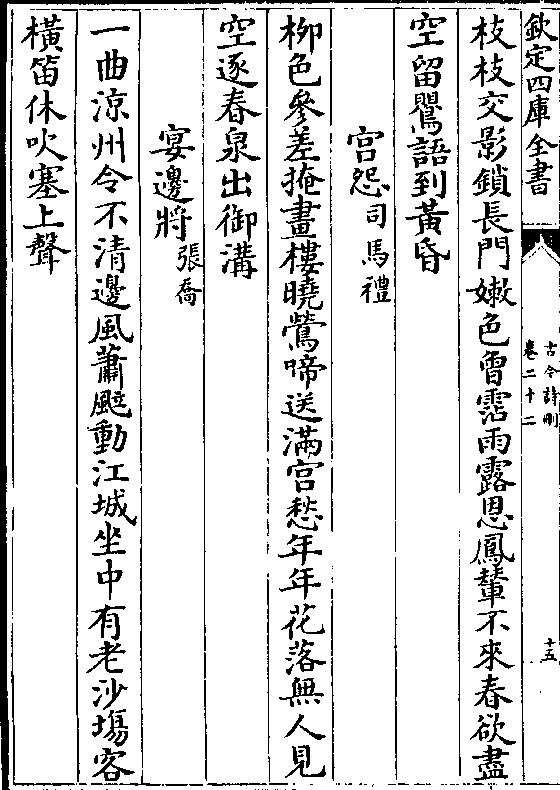 欽定四庫全書
古今詩刪
卷二十二
十五
枝枝交影鎖長門嫩色曾霑雨露恩鳳輦不來春欲盡
空留鶯語到黃昏
宫怨司馬禮
柳色參差掩畫樓曉鶯啼送滿宫愁年年花落無人見
空逐春泉出御溝
宴邊將張喬
一曲涼州令不清邊風蕭颯動江城坐中有老沙塲客
橫笛休吹塞上聲